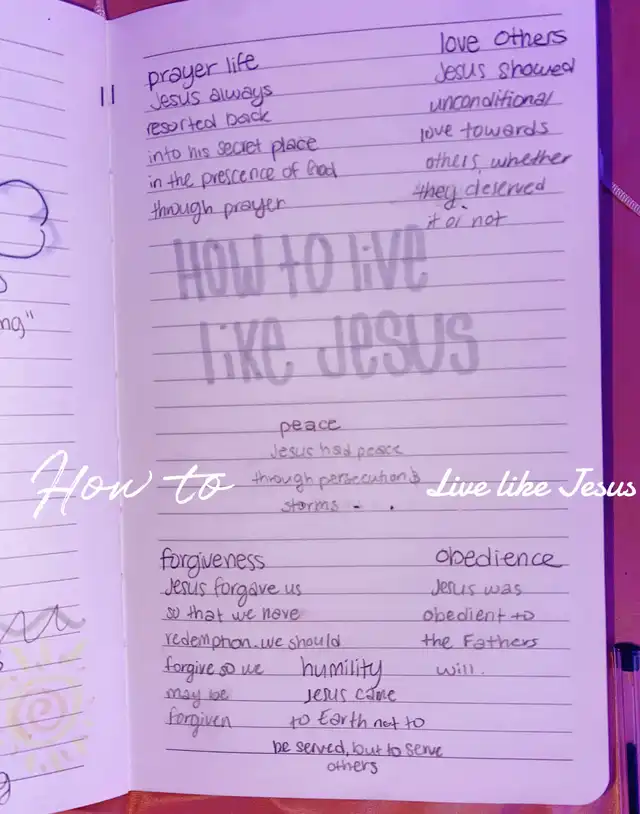 prayer life
Jesus always
resorted back
into his secret place
in the prescence of God
through prayer
love others
Jesus showed
unconditional
love towards
others, whether
they deserved
it or not
HOW to live
like Jesus
peace
Jesus had peace
through persecution &
storms
How to Live like Jesus
forgiveness
Jesus forgave us
so that we have
redemption. we should
forgive so we
may be
forgiven
humility
Jesus came
to Earth not to
be served, but to serve
others
obedience
Jesus was
obedient to
the Fathers
will.
ng"